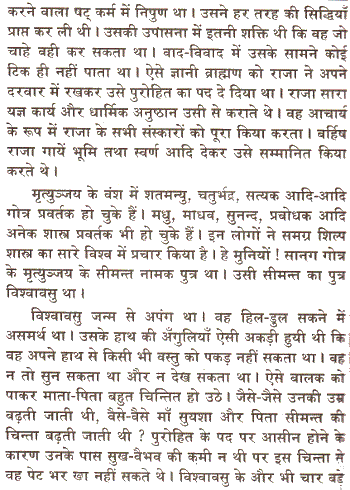 करने वाला षट् कर्म में निपुण था। उसने हर तरह की सिद्धियाँ
प्राप्त कर ली थी। उसकी उपासना में इतनी शक्ति थी कि वह जो
चाहे वही कर सकता था। वाद-विवाद में उसके सामने कोई
टिक ही नहीं पाता था। ऐसे ज्ञानी ब्राह्मण को राजा ने अपने
दरबार में रखकर उसे पुरोहित का पद दे दिया था। राजा सारा
यज्ञ कार्य और धार्मिक अनुष्ठान उसी से कराते थे। वह आचार्य
के रूप में राजा के सभी संस्कारों को पूरा किया करता। वर्हिष
राजा गायें भूमि तथा स्वर्ण आदि देकर उसे सम्मानित किया
करते थे।
मृत्युञ्जय के वंश में शतमन्यु, चतुर्भद्र, सत्यक आदि-आदि
गोत्र प्रवर्तक हो चुके हैं। मधु, माधव, सुनन्द, प्रबोधक आदि
अनेक शास्त्र प्रवर्तक भी हो चुके हैं। इन लोगों ने समग्र शिल्प
शास्त्र का सारे विश्व में प्रचार किया है। हे मुनियों! सानग गोत्र
के मृत्युञ्जय के सीमन्त नामक पुत्र था। उसी सीमन्त का पुत्र
विश्वावसु था।
विश्वावसु जन्म से अपंग था। वह हिल-डुल सकने में
असमर्थ था। उसके हाथ की अँगुलियाँ ऐसी अकड़ी हुयी थी कि
वह अपने हाथ से किसी भी वस्तु को पकड़ नहीं सकता था। वह
न तो सुन सकता था और न देख सकता था। ऐसे बालक को
पाकर माता-पिता बहुत चिन्तित हो उठे। जैसे-जैसे उनकी उम्र
बढ़ती जाती थी, वैसे-वैसे माँ सुयशा और पिता सीमन्त की
चिन्ता बढ़ती जाती थी? पुरोहित के पद पर आसीन होने के
कारण उनके पास सुख-वैभव की कमी न थी पर इस चिन्ता से
वह पेट भर खा नहीं सकते थे। विश्वावसु के और भी चार बड़े